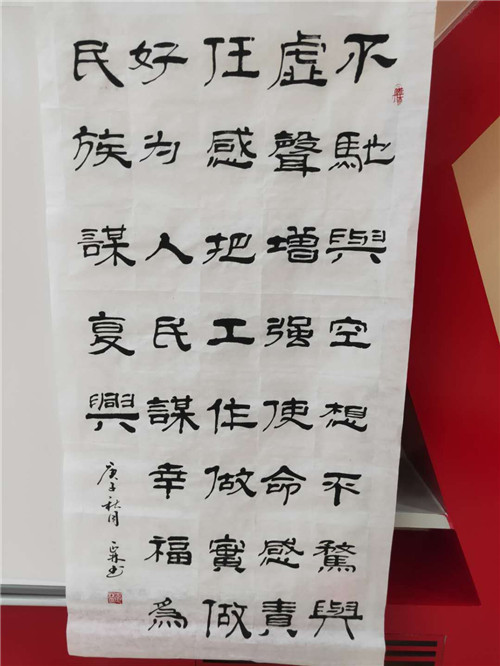 不馳與空想不騖與
虛聲增强使命感責
任感把工作做實做
好为人民謀幸福為
民族謀复興
庚子秋月
书